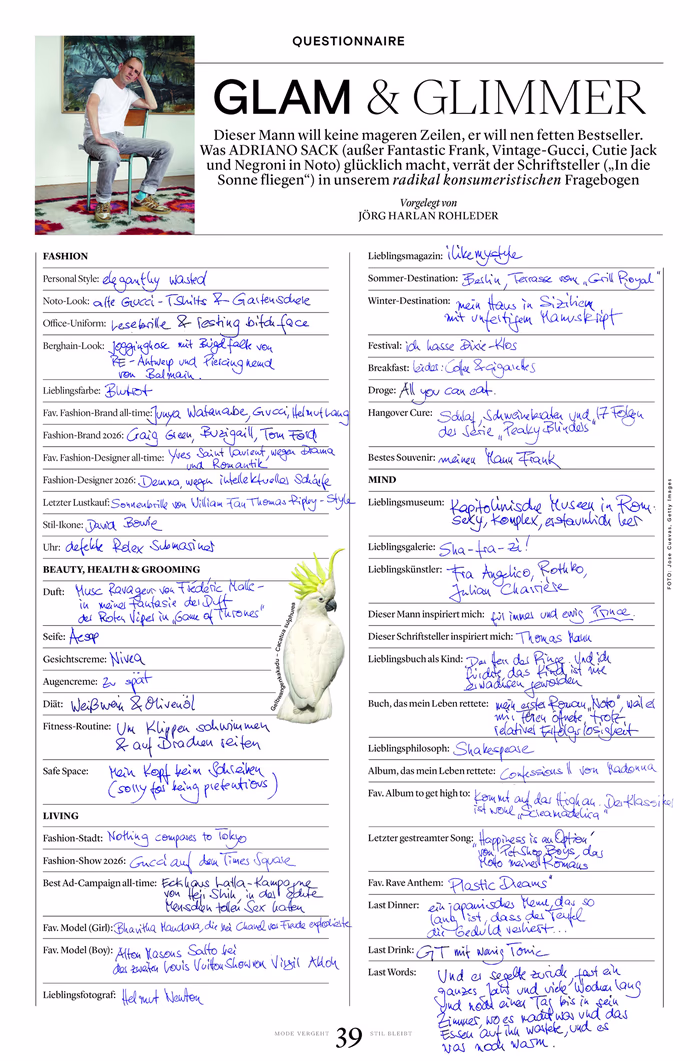 QUESTIONNAIRE
GLAM & GLIMMER
Dieser Mann will keine mageren Zeilen, er will nen fetten Bestseller.
Was ADRIANO SACK (außer Fantastic Frank, Vintage-Gucci, Cutie Jack
und Negroni in Noto) glücklich macht, verrät der Schriftsteller („In die
Sonne fliegen“) in unserem radikal konsumeristischen Fragebogen
Vorgelegt von
JÖRG HARLAN ROHLEDER
FASHION
Personal Style: elegantly wasted
Noto-Look: alte Gucci-T-Shirts & Gartenschere
Office-Uniform: Lesebrille & resting bitch face
Berghain-Look: Jogginghose mit Bügelfalte von
RE-Antwerp und Piercinghemd
von Balmain.
Lieblingsfarbe: Blutrot
Fav. Fashion-Brand all-time: Junya Watanabe, Gucci, Helmut Lang
Fashion-Brand 2026: Craig Green, Buzigaill, Tom Ford
Fav. Fashion-Designer all-time: Yves Saint Laurent, wegen Drama
und Romantik
Fashion-Designer 2026: Demna, wegen intellektueller Schärfe
Letzter Lustkauf: Sonnenbrille von Villiam Fan Thomas Ripley-Style
Stil-Ikone: David Bowie
Uhr: defekte Rolex Submariner
BEAUTY, HEALTH & GROOMING
Duft: Musc Ravageur von Frédéric Malle –
in meiner Fantasie der Duft
der Roten Viper in „Game of Thrones“
Seife: Aesop
Gesichtscreme: Nivea
Augencreme: zu spät
Diät: Weißwein & Olivenöl
Fitness-Routine: Um Klippen schwimmen
& auf Drachen reiten
Safe Space: Mein Kopf beim Schreiben
(sorry for being pretentious)
Gelbwangenkakadu – Cacatua sulphurea
LIVING
Fashion-Stadt: Nothing compares to Tokyo
Fashion-Show 2026: Gucci auf dem Times Square
Best Ad-Campaign all-time: Eckhaus Latta-Kampagne
von Heji Shin, in der echte
Menschen tollen Sex hatten
Fav. Model (Girl): Bhavitha Mandava, die bei Chanel vor Freude explodierte
Fav. Model (Boy): Alton Masons Salto bei
der zweiten Louis Vuitton Show von Virgil Abloh
Lieblingsfotograf: Helmut Newton
Lieblingsmagazin: ilikemystyle
Sommer-Destination: Berlin, Terrasse vom „Grill Royal“
Winter-Destination: mein Haus in Sizilien
mit unfertigem Manuskript
Festival: ich hasse Dixie-Klos
Breakfast: leider: Coffee & cigarettes
Droge: All you can eat.
Hangover Cure: Schlaf, Schweinebraten und 17 Folgen
der Serie „Peaky Blinders“
Bestes Souvenir: meinen Mann Frank
MIND
Lieblingsmuseum: Kapitolinische Museen in Rom.
sexy, komplex, erstaunlich leer
Lieblingsgalerie: Sha-fra-zi!
Lieblingskünstler: Fra Angelico, Rothko,
Julian Charrière
Dieser Mann inspiriert mich: für immer und ewig Prince.
Dieser Schriftsteller inspiriert mich: Thomas Mann
Lieblingsbuch als Kind: Der Herr der Ringe. Und ich
fürchte, das Kind ist nie
erwachsen geworden
Buch, das mein Leben rettete: mein erster Roman „Noto“, weil er
mir Türen öffnete, trotz
relativer Erfolgslosigkeit
Lieblingsphilosoph: Shakespeare
Album, das mein Leben rettete: Confessions II von Madonna
Fav. Album to get high to: Kommt auf das High an. Der Klassiker
ist wohl „Screamadelica“
Letzter gestreamter Song: „Happiness is an Option“
von Pet Shop Boys, das
Motto meines Romans
Fav. Rave Anthem: „Plastic Dreams“
Last Dinner: ein japanisches Menu, das so
lang ist, dass der Teufel
die Geduld verliert...
Last Drink: GT mit wenig Tonic
Last Words: Und er segelte zurück, fast ein
ganzes Jahr und viele Wochen lang
und noch einen Tag bis in sein
Zimmer, wo es Nacht war und das
Essen auf ihn wartete, und es
war noch warm.
FOTO: Jose Cuevas, Getty Images
MODE VERGEHT 39 STIL BLEIBT